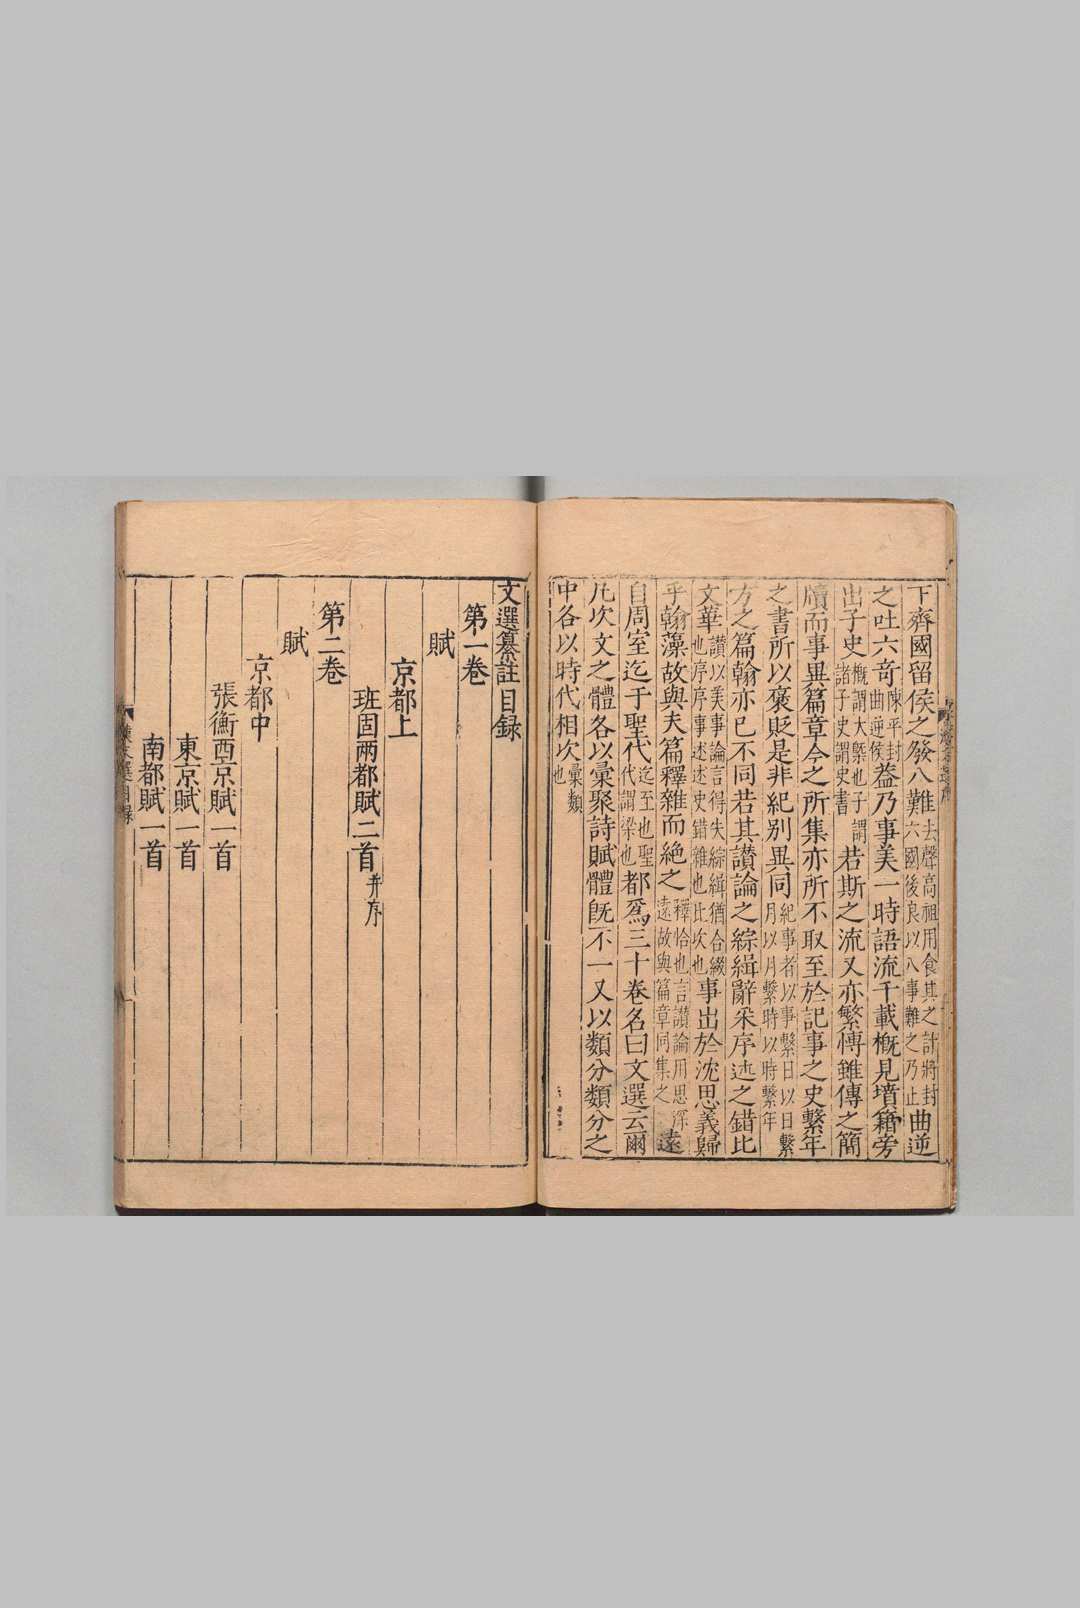 下齊國留侯之發八難去聲高祖用食其之計將封六國後良以八事難之乃止曲逆
之吐六奇陳平封曲逆侯葢乃事美一時語流千載槪見墳籍旁
出子史槪謂大槩也子謂諸子史謂史書若斯之流又亦繁愽雖傳之簡
牘而事異篇章今之所集亦所不取至於記事之史繫年
之書所以褒貶是非紀別異同紀事者以事繫日以日繫月以月繫時以時繫年
方之篇翰亦已不同若其讃論之綜緝辭采序述之錯比
文華讃以美事論言得失綜緝猶合綴也序序事述述史錯雜也比次也事出於沈思義歸
乎翰藻故與夫篇釋雜而絶之釋恰也言讃論用思深遠故與篇章同集之遠
自周室迄于聖代迄至也聖代謂梁也都爲三十卷名曰文選云爾
凡次文之體各以彙聚詩賦體旣不一又以類分類分之
中各以時代相次彙類也
文選纂註目録
第一卷
賦
京都上
班固兩都賦二首并序
第二卷
賦
京都中
張衡西京賦一首
東京賦一首
南都賦一首